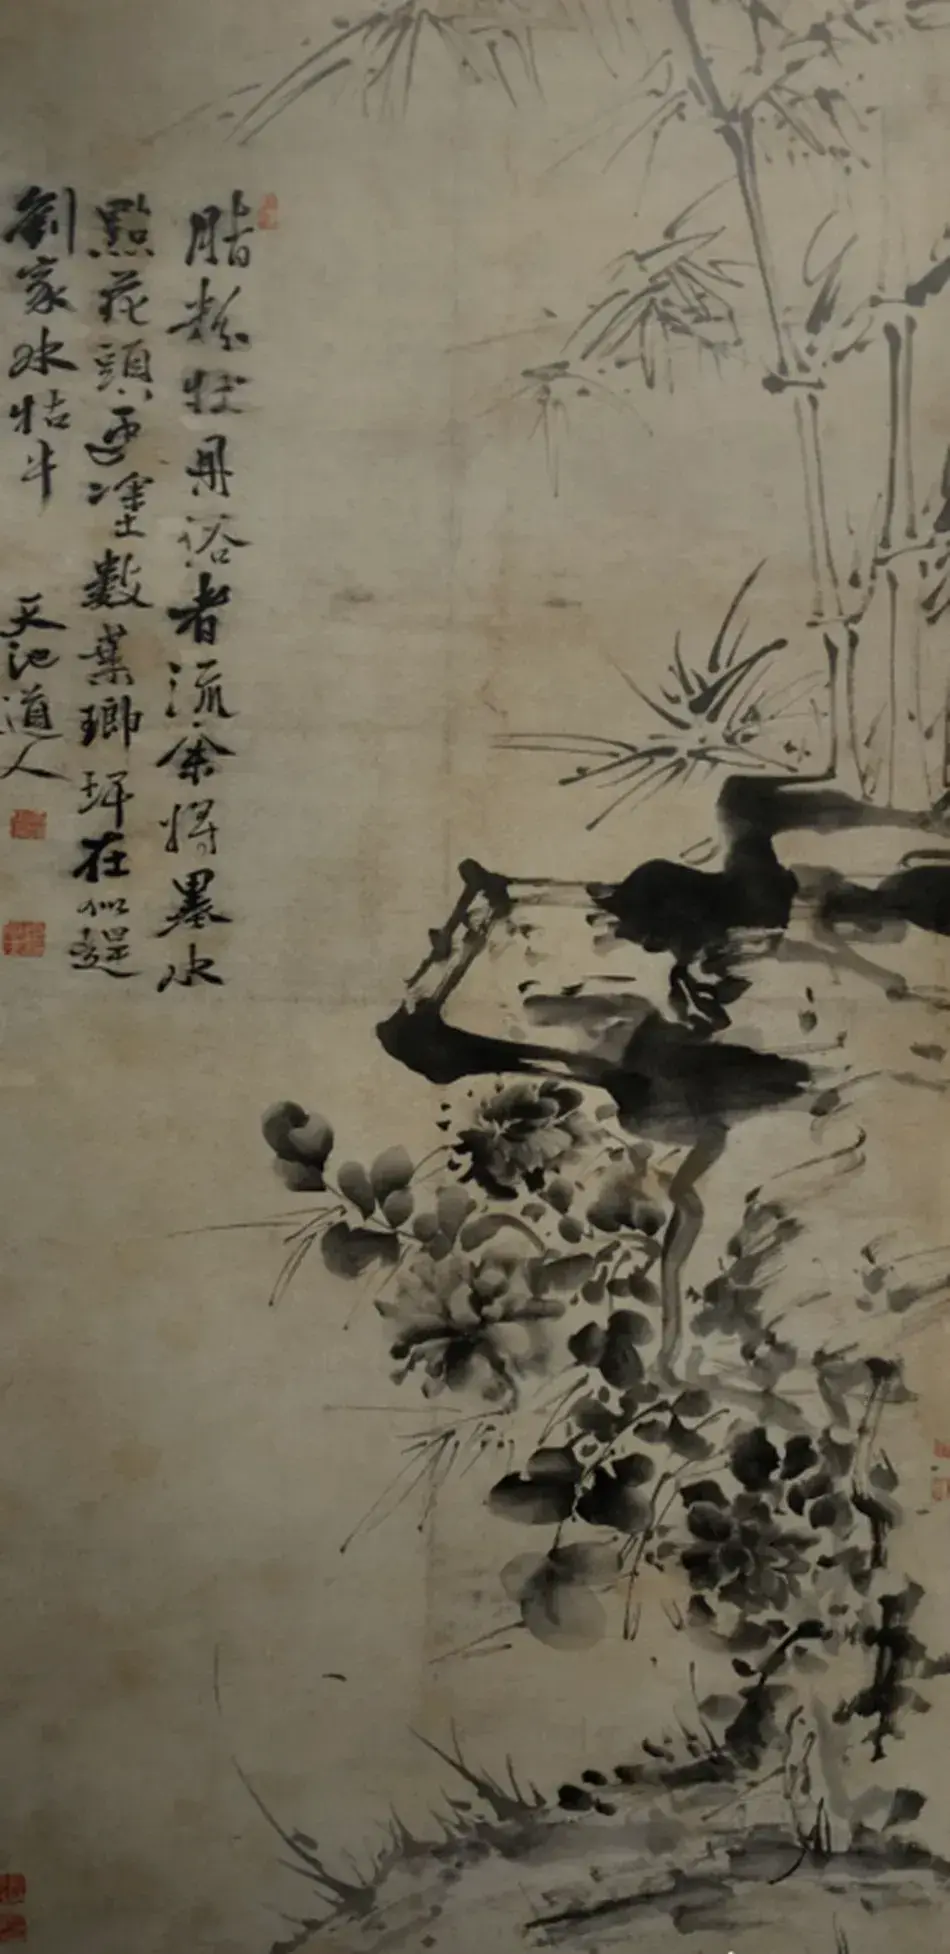 脂粉牡丹俗者流余將墨水
點花頭更塗數葉瑯玕在似趕
劉家水牯牛
天池道人